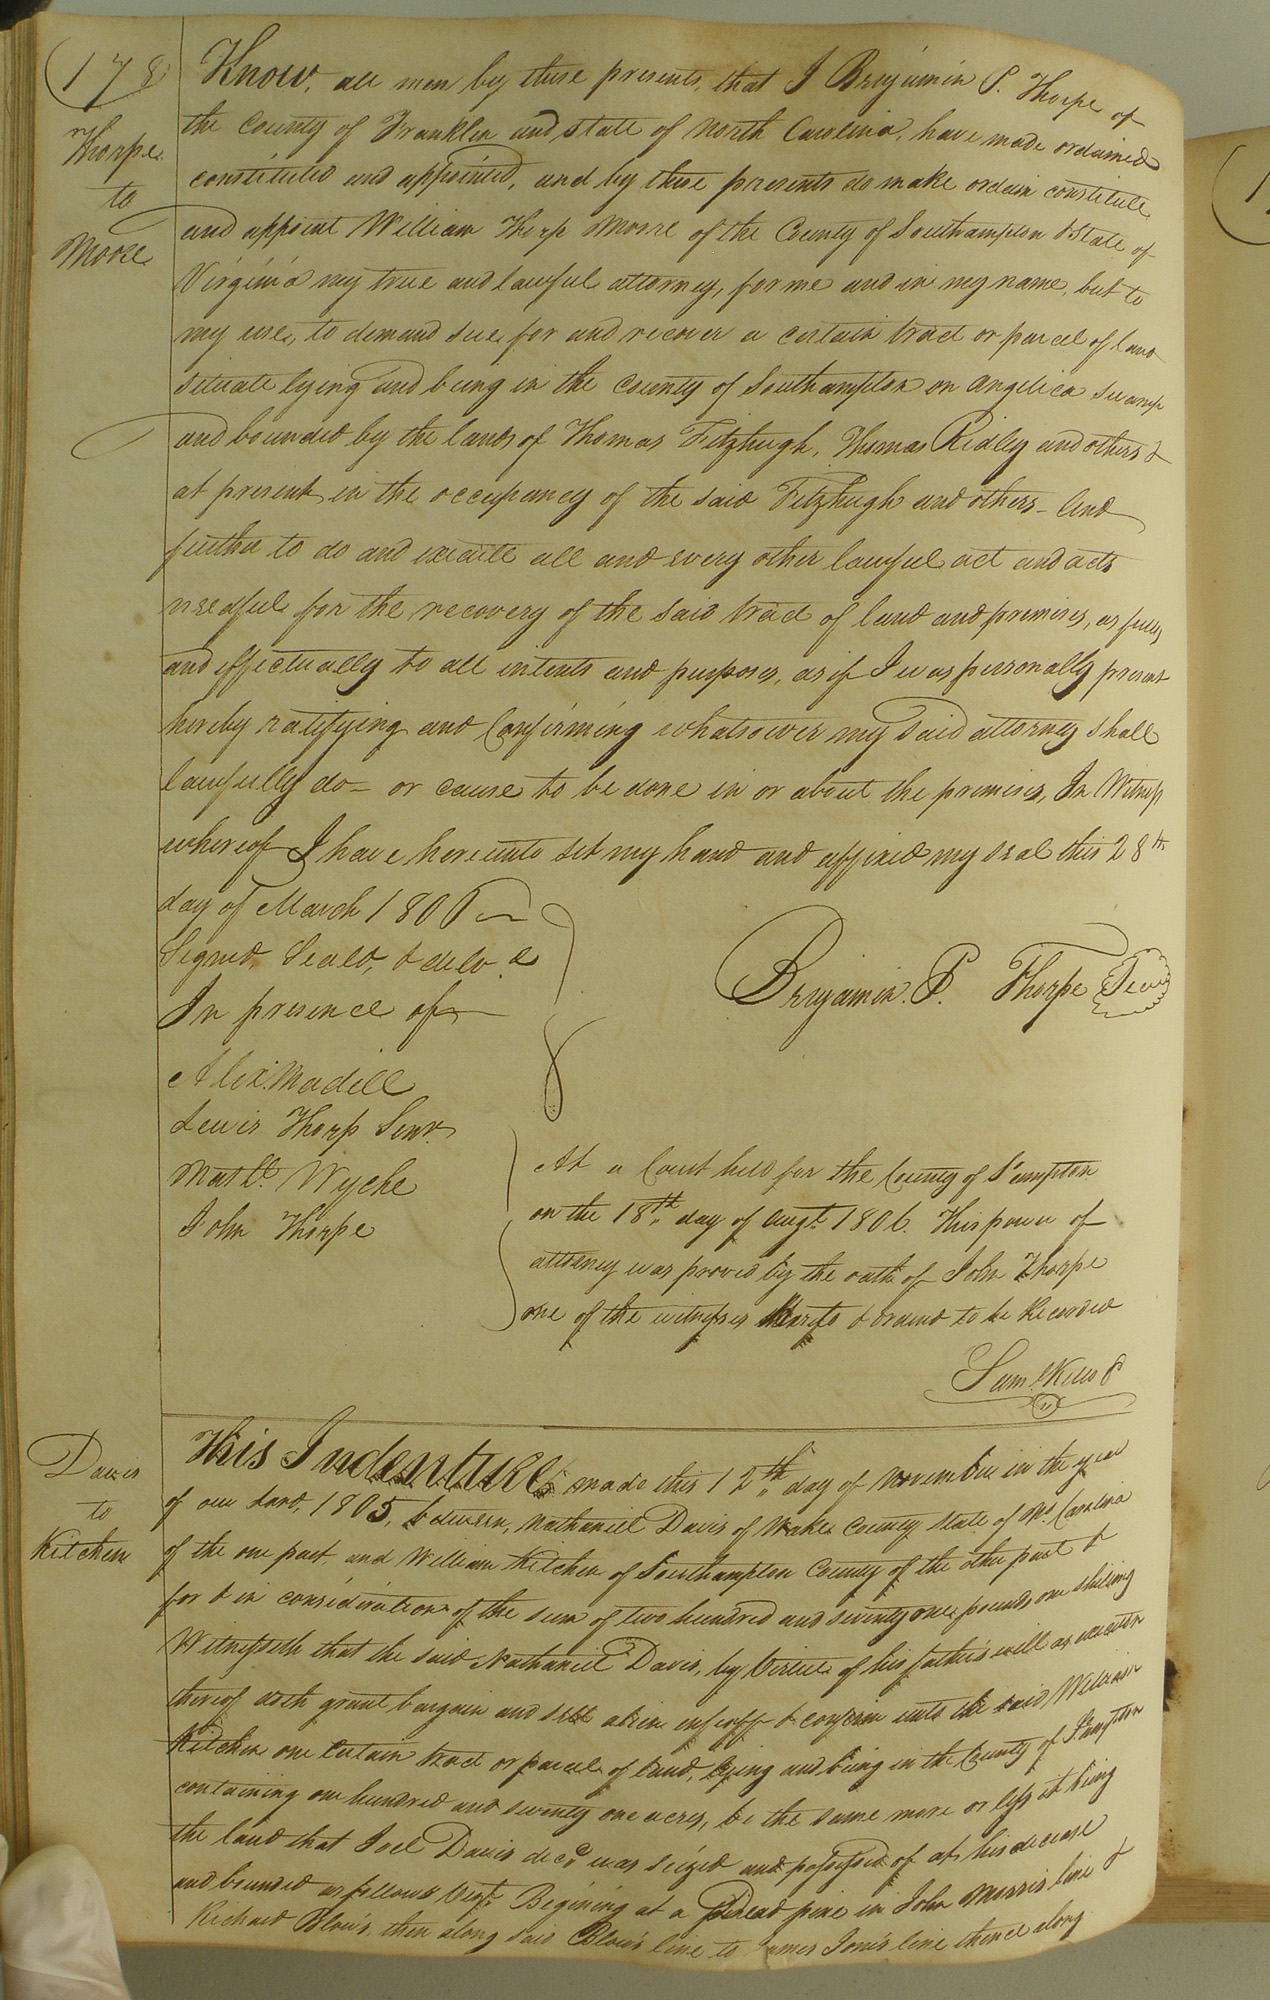 178
Thorpe
to
Moore
Know, all men by these presents, that I Benjamin P. Thorpe of
the County of Franklin and state of North Carolina, have made ordained
constituted and appointed, and by these presents do make ordain constitute
and appoint William Thorp Moore of the County of Southampton & State of
Virginia my true and lawful attorney, for me and in my name, but to
my use, to demand sue for and recover a certain tract or parcel of land
situate lying and being in the County of Southampton on Angelica Swamp
and bounded by the lands of Thomas Fitzhugh, Thomas Ridley and others &
at present in the occupancy of the said Fitzhugh and others - And
further to do and execute all and every other lawful act and acts
needful for the recovery of the said tract of land and premises, as fully
and effectually to all intents and purposes, as if I was personally present
hereby ratifying and Confirming whatsoever my said attorney shall
lawfully do - or cause to be done in or about the premises, In Witness
whereof I have hereunto set my hand and affixed my seal this 28th
day of March 1806
Signed, Seald, & delv.d
In presence of
Benjamin. P. Thorpe Seal
Alex. Madill
Lewis Thorp Senr.
Matt. Wyche
John Thorpe
At a Court held for the County of S°ampton
on the 18th day of Augt. 1806. This power of
attorney was proved by the oath of John Thorpe
one of the witnesses thereto & ordered to be Recorded
Saml. Kello
Davis
to
Kitchen
This Indenture made this 12th day of November in the year
of our Lord, 1805, between, Nathaniel Davis of Wake County State of No. Carolina
of the one part, and William Kitchen of Southampton County of the other part &
for & in consideration of the sum of two hundred and seventy one pounds one shilling
Witnesseth that the said Nathaniel Davis, by Virtue of his father's will as executor
thereof doth grant bargain and sell alien infeoff & confirm unto the said William
Kitchen one Certain tract or parcel of land, lying and being in the County of S°ampton
containing one hundred and seventy one acres, be the same more or less it being
the land that Joel Davis decd. was seized and possessed of at his decease
and bounded as follows Vizt. Begining at a dead pine in John Morris line &
Richard Blow's, then along said Blow's line to James Jones line thence along